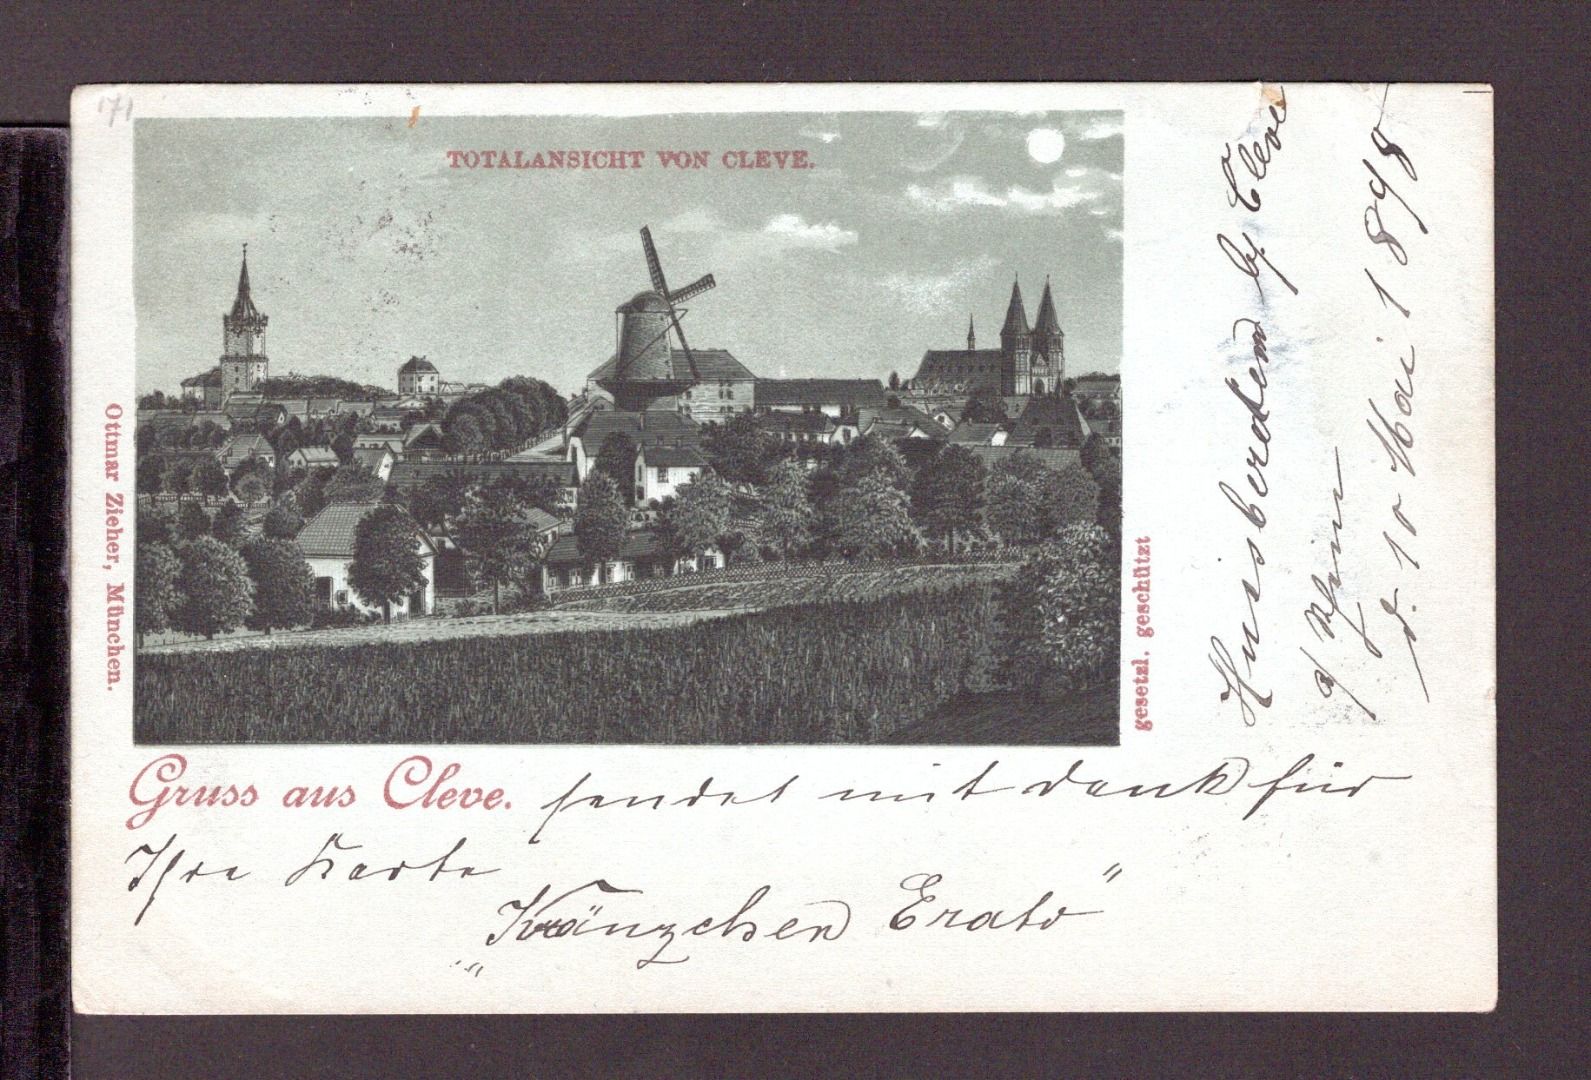 171
TOTALANSICHT VON CLEVE.
Ottmar Zieher, München.
gesetzl. geschützt
Huisberden b/ Cleve
a/ Rhein
d. 10 Mai 1898
Gruss aus Cleve. sendet mit Dank für
Ihre Karte
„Kränzchen Erato"